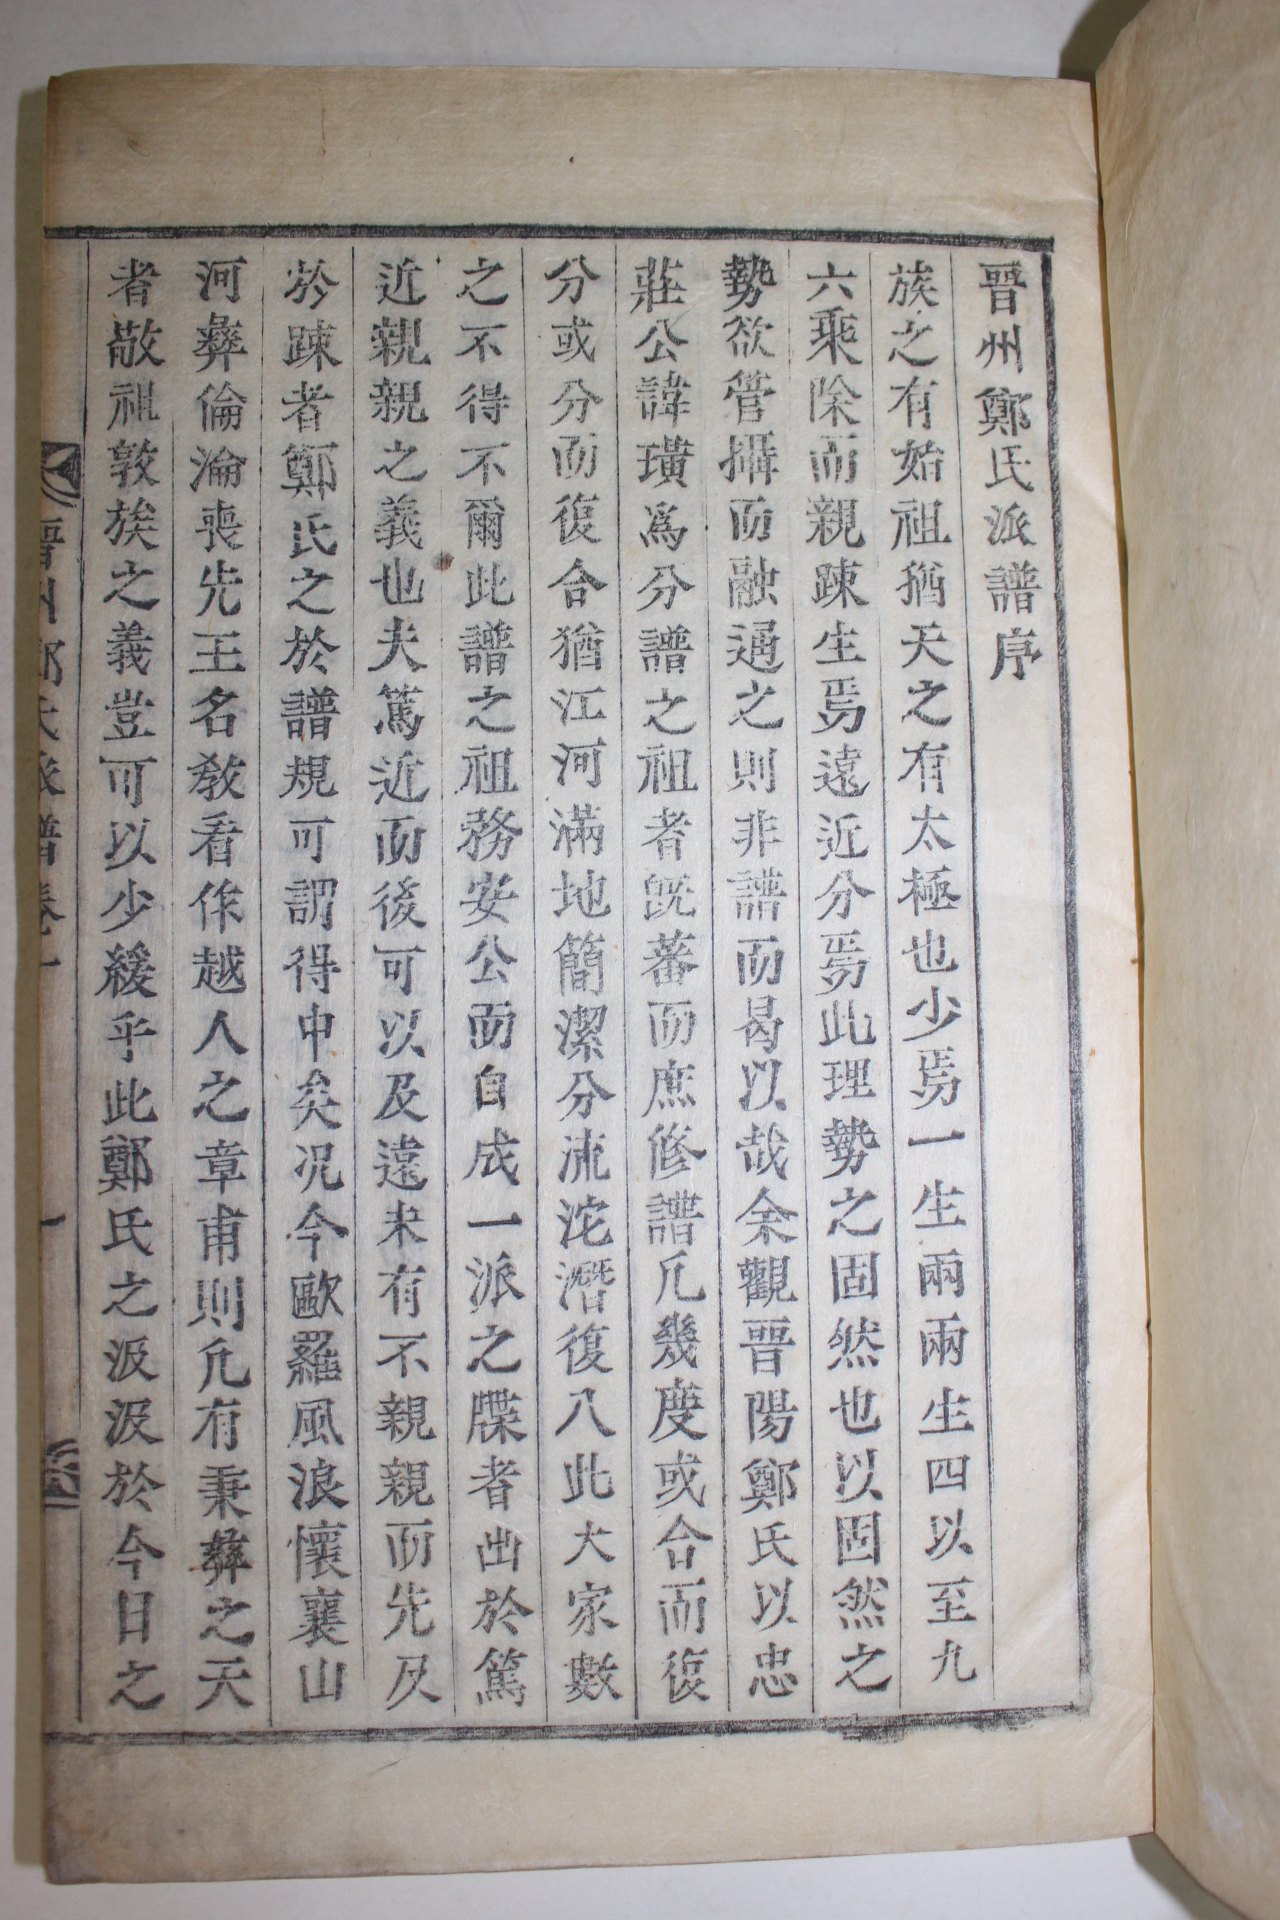 晉州鄭氏派譜序
族之有始祖猶天之有太極也少焉一生兩兩生四以至九
六乘除而親踈生焉遠近分焉此理勢之固然也以固然之
勢欲管攝而融通之則非譜而曷以哉余觀晋陽鄭氏以忠
莊公諱璜爲分譜之祖者旣蕃而庶修譜凡幾度或合而復
分或分而復合猶江河滿地簡潔分流沱潛復入此大家數
之不得不爾此譜之祖務安公而自成一派之牒者出於篤
近親親之義也夫篤近而後可以及遠未有不親親而先及
於踈者鄭氏之於譜規可謂得中矣况今歐羅風浪懷襄山
河彝倫淪喪先王名敎看作越人之章甫則凡有秉彝之天
者敬祖敦族之義豈可以少緩乎此鄭氏之汲汲於今日之
晉州鄭氏派譜卷一 一